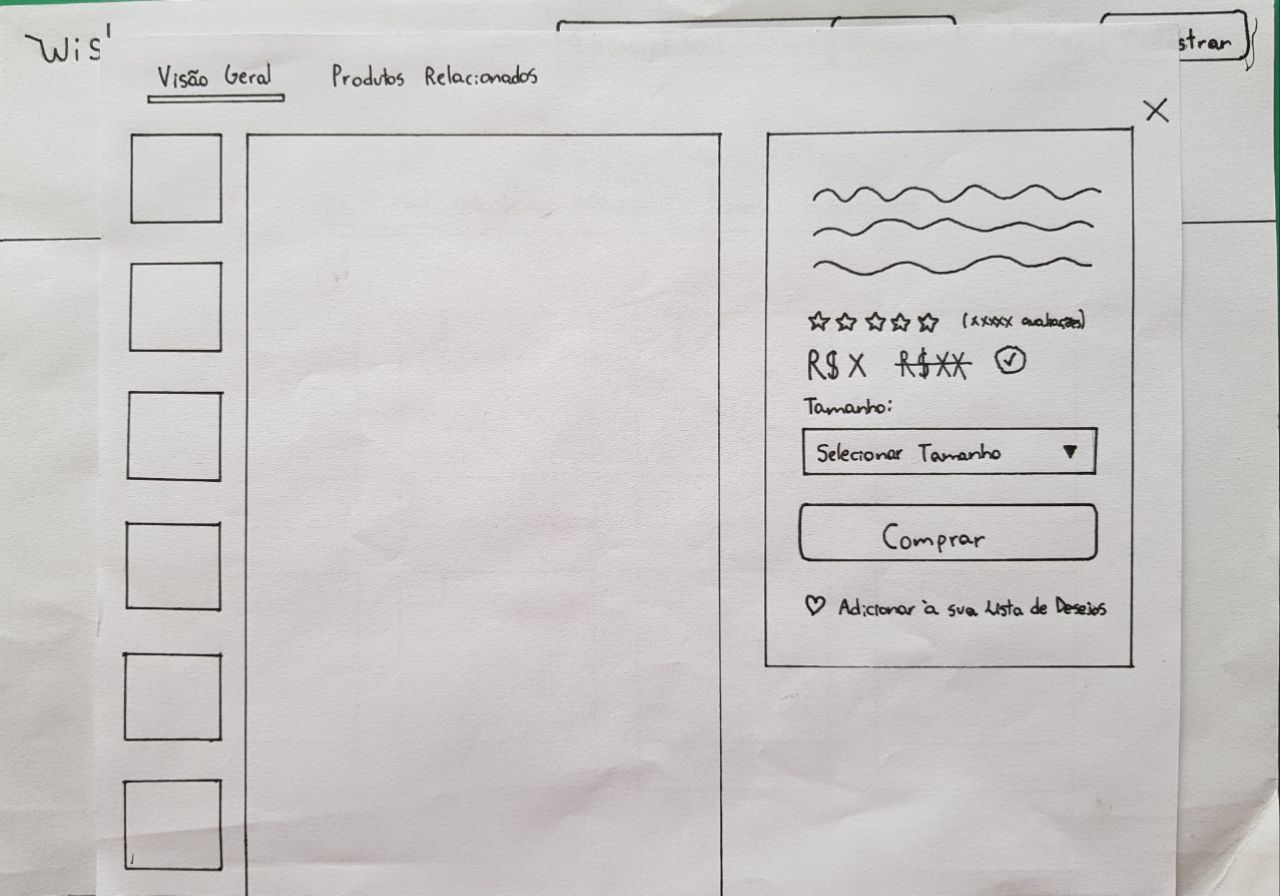 Wis
strar
Visão Geral
Produtos Relacionados
X
(xxxxx avaliações)
R$ X R$ XX
Tamanho:
Selecionar Tamanho
Comprar
Adicionar à sua Lista de Desejos